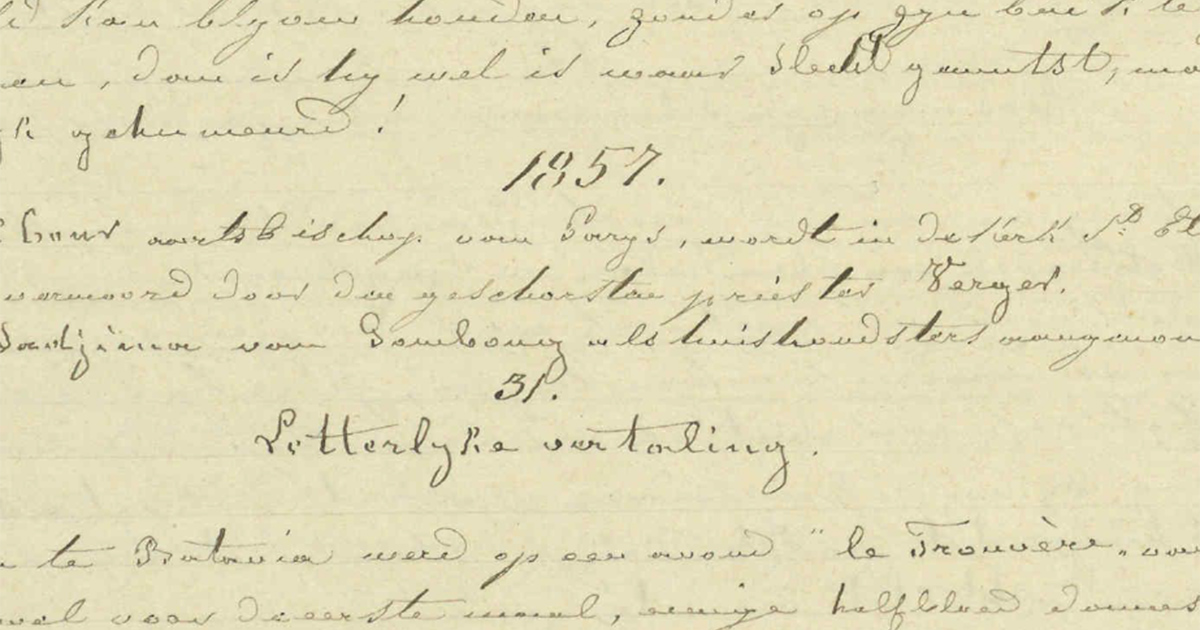 kan blyven houden, zonder op zyn bank te
dan is hy wel is waar slecht gemutst, maa
gehumeurd!
1857.
aartsbischop van Parys, wordt in de Kerk St. Et
vermoord door den geschorsten priester Verger.
van Gombong als huishoudster aangenom
31.
Letterlyke vertaling.
te Batavia werd op een avond "le Trouvère" van
wel voor de eerste maal, eenige halfbloed dames